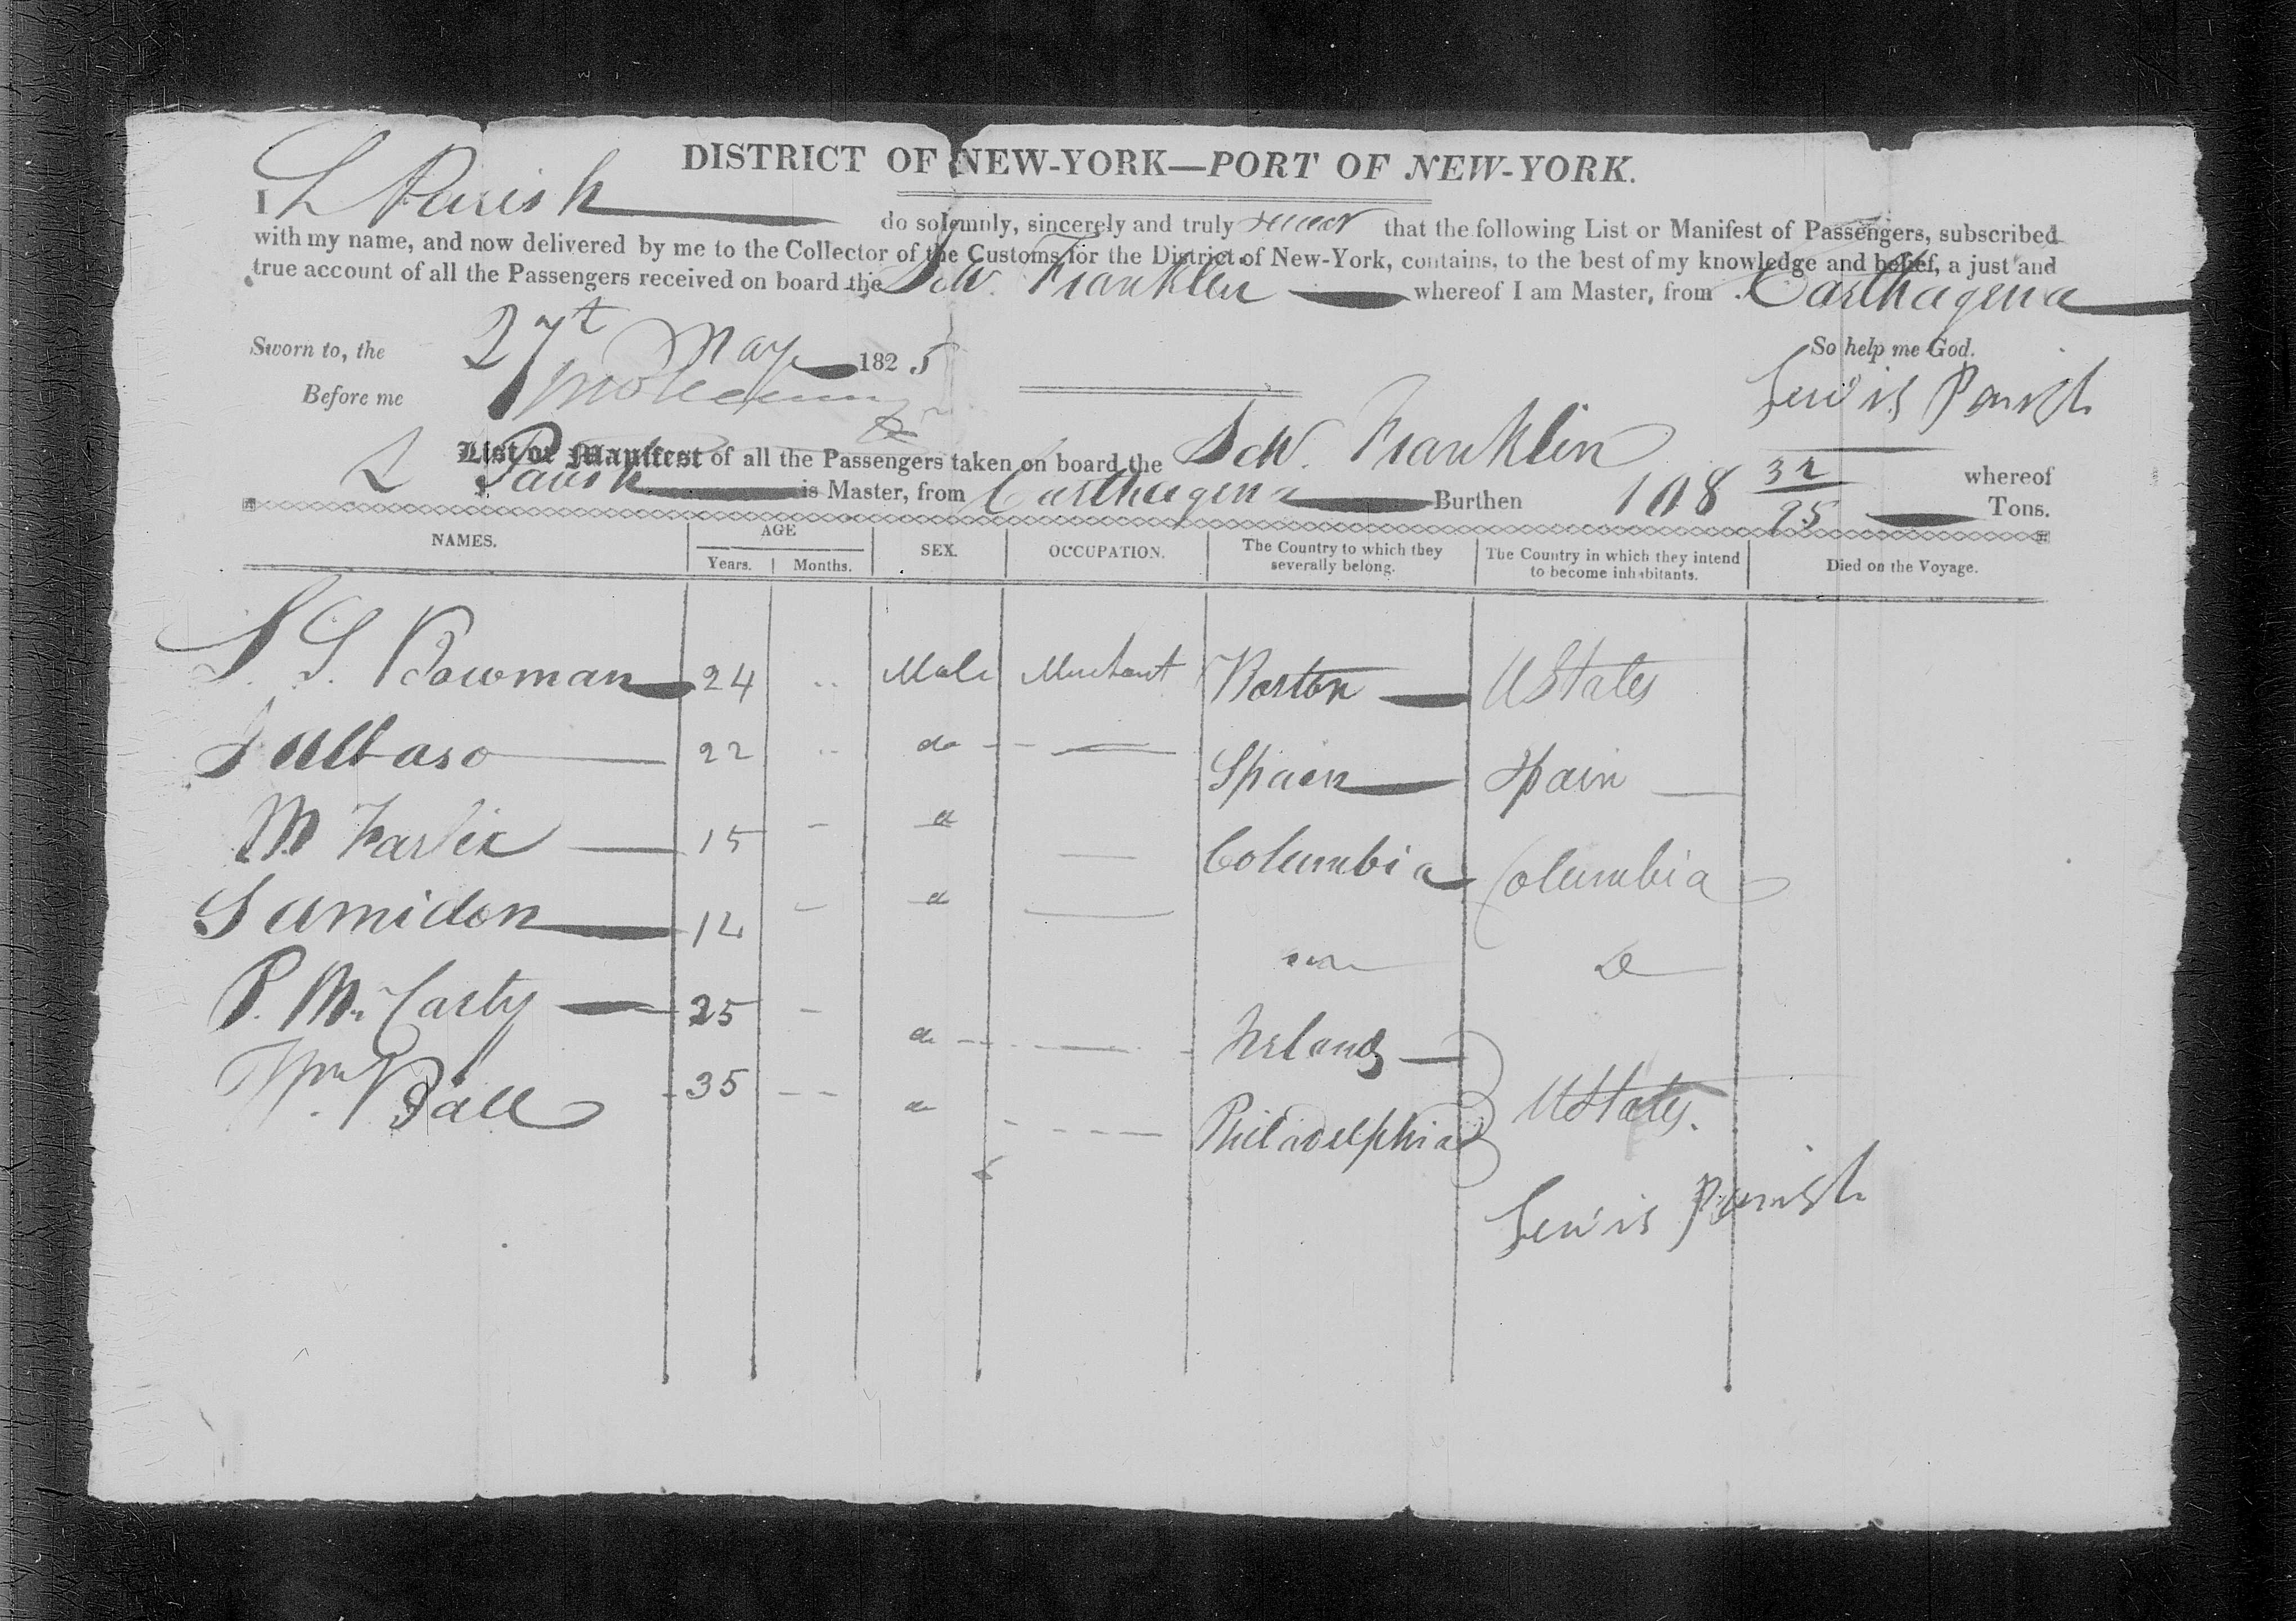 DISTRICT OF NEW-YORK—PORT OF NEW-YORK.
I L Parish do solemnly, sincerely and truly swear that the following List or Manifest of Passengers, subscribed
with my name, and now delivered by me to the Collector of the Customs for the District of New-York, contains, to the best of my knowledge and belief, a just and
true account of all the Passengers received on board the Schr. Franklin whereof I am Master, from Carthagena
So help me God.
Sworn to, the 27t May 1825
Lewis Parish
Before me
List or Manifest of all the Passengers taken on board the Schr. Franklin whereof
L Parish is Master, from Carthagena Burthen 108 32/95 Tons.
NAMES. AGE Years. Months. SEX. OCCUPATION. The Country to which they severally belong. The Country in which they intend to become inhabitants. Died on the Voyage.
S. S. Bowman 24 .. Male Merchant Boston U States
22 .. do Spain Spain
M 15 - do Columbia Columbia
12 - do do Do
P. Mc Carty 25 - do Ireland
Wm. Ball 35 -- do Philadelphia U States.
6
Lewis Parish